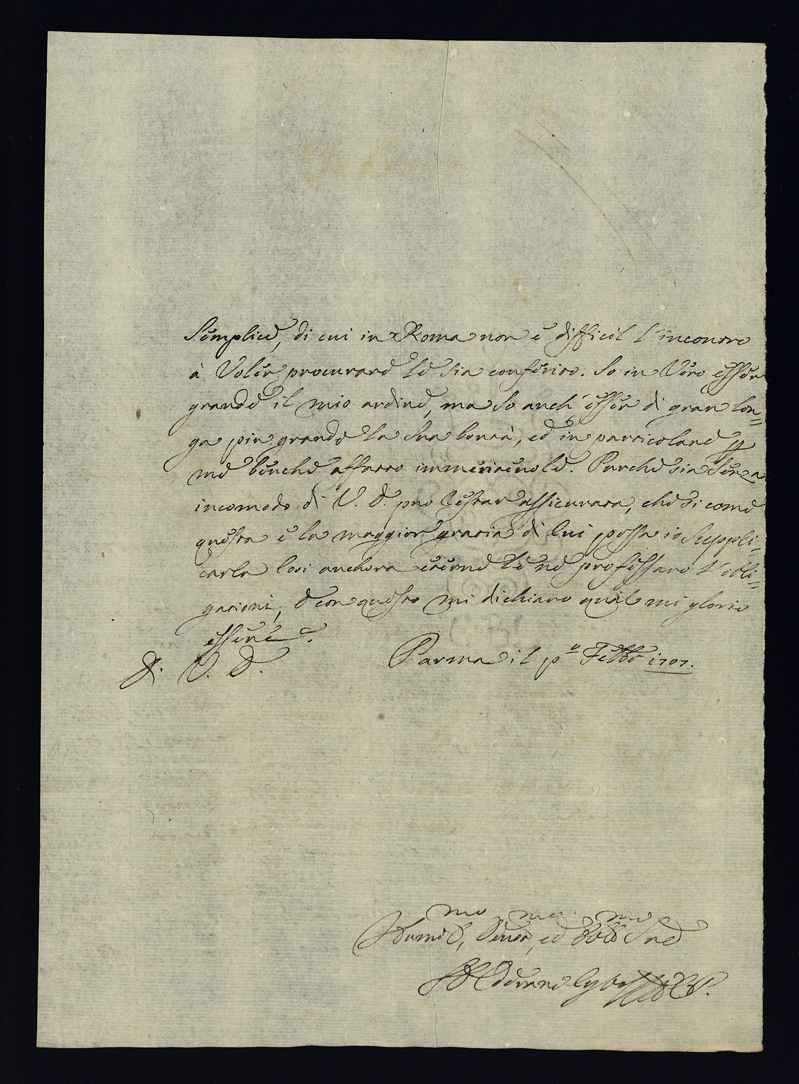 Semplice, di cui in Roma non è difficil l'incontro
à voler procurare le sia conferito. So in vero esser
grande il mio ardire, ma so anch'esser di gran lon=
ga piu grande la sua bontà, ed in particolare p
me benche affatto immeritevole. Purche sia senza
incomodo di V. S. puo restar assicurata, che si come
questa è la maggior gratia di lui possa io suppli=
carla cosi anchora eterne le ne professaro l'obli=
gationi, e con questo mi dichiaro qual mi glorio
essere &c.
D. V. S.
Parma il p.o Febbro 1707.
Humil.mo, Dever.mo, ed Obb.mo Sre